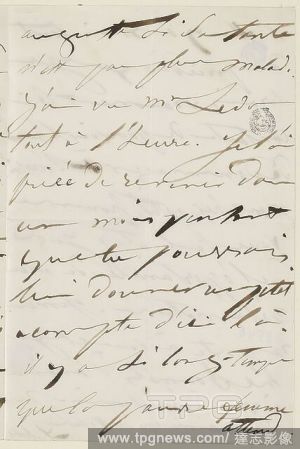 auguste si sa tante
n'est pas plus malade.
J'ai vu Mr Ledo
tout à l'heure. Je l'ai
prié de revenir dans
un mois
que tu pourrais
lui donner un petit
acompte d'ici là.
il y a si longtemps
que la pauvre femme
attend
TPG
www.tpgnews.com/達志影像